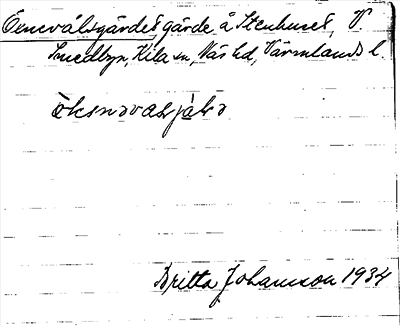 Exnevålsgärdet, gärde å Stenhuset, V
Smedbyn, Kila sn, Näs hd, Värmlands l.
öksnəvasjálə
Britta Johansson 1934